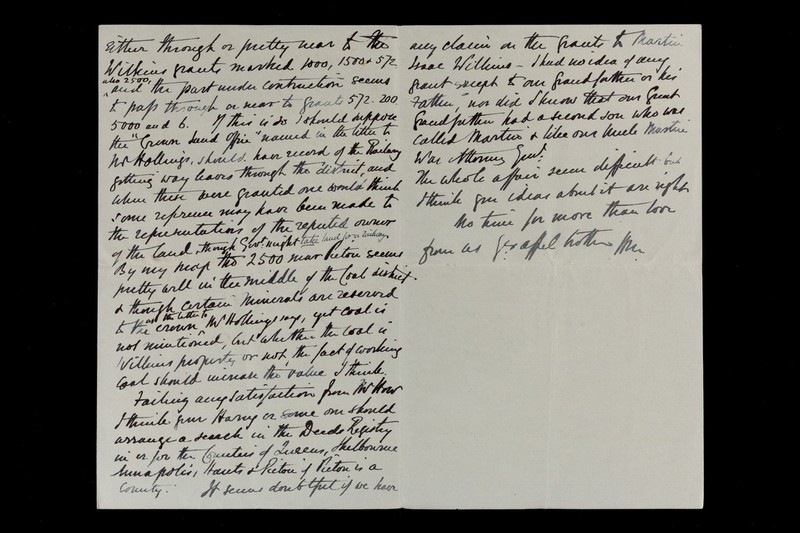 either through or pretty near to the
Wilkins grants marked 1000, 1500 & 572
also 2500,
and the part under construction seems
to pass through or near to grants 572. 200
5000 and 6. If this is so I should suppose
the "Crown Land Office" named in the letter to
Mr Hollings, should have record of the Railway
getting way leaves through the district, and
when these were granted one would think
some reference may have been made to
the representatives of the reputed owner
of the land, though Govt might take land for a railway.
By my map the 2500 near Pictou seems
pretty well in the middle of the Coal district.
& though certain minerals are reserved
to the crown, as the letter to Mr Hollings says, yet coal is
not mentioned, but whether the coal is
Wilkins property or not, the fact of working
coal should increase the value I think.
Failing any satisfaction from Mr How
I think you Harry or some one should
arrange a search in the Deeds Registry
in or for the Counties of Queens, Shelbourne
Annapolis, Hants & Pictou if Pictou is a
County. It seems doubtful if we have
any claim on the grants to Martin
Isaac Wilkins - I had no idea of any
grant except to our Grandfather or his
Father, nor did I know that our Great
Grandfather had a second son who was
called Martin & like our Uncle Martin
was Attorney Genl.
The whole affair seems difficult but
I think your ideas about it are right
No time for more than love
from us Yr affect brother Wm.